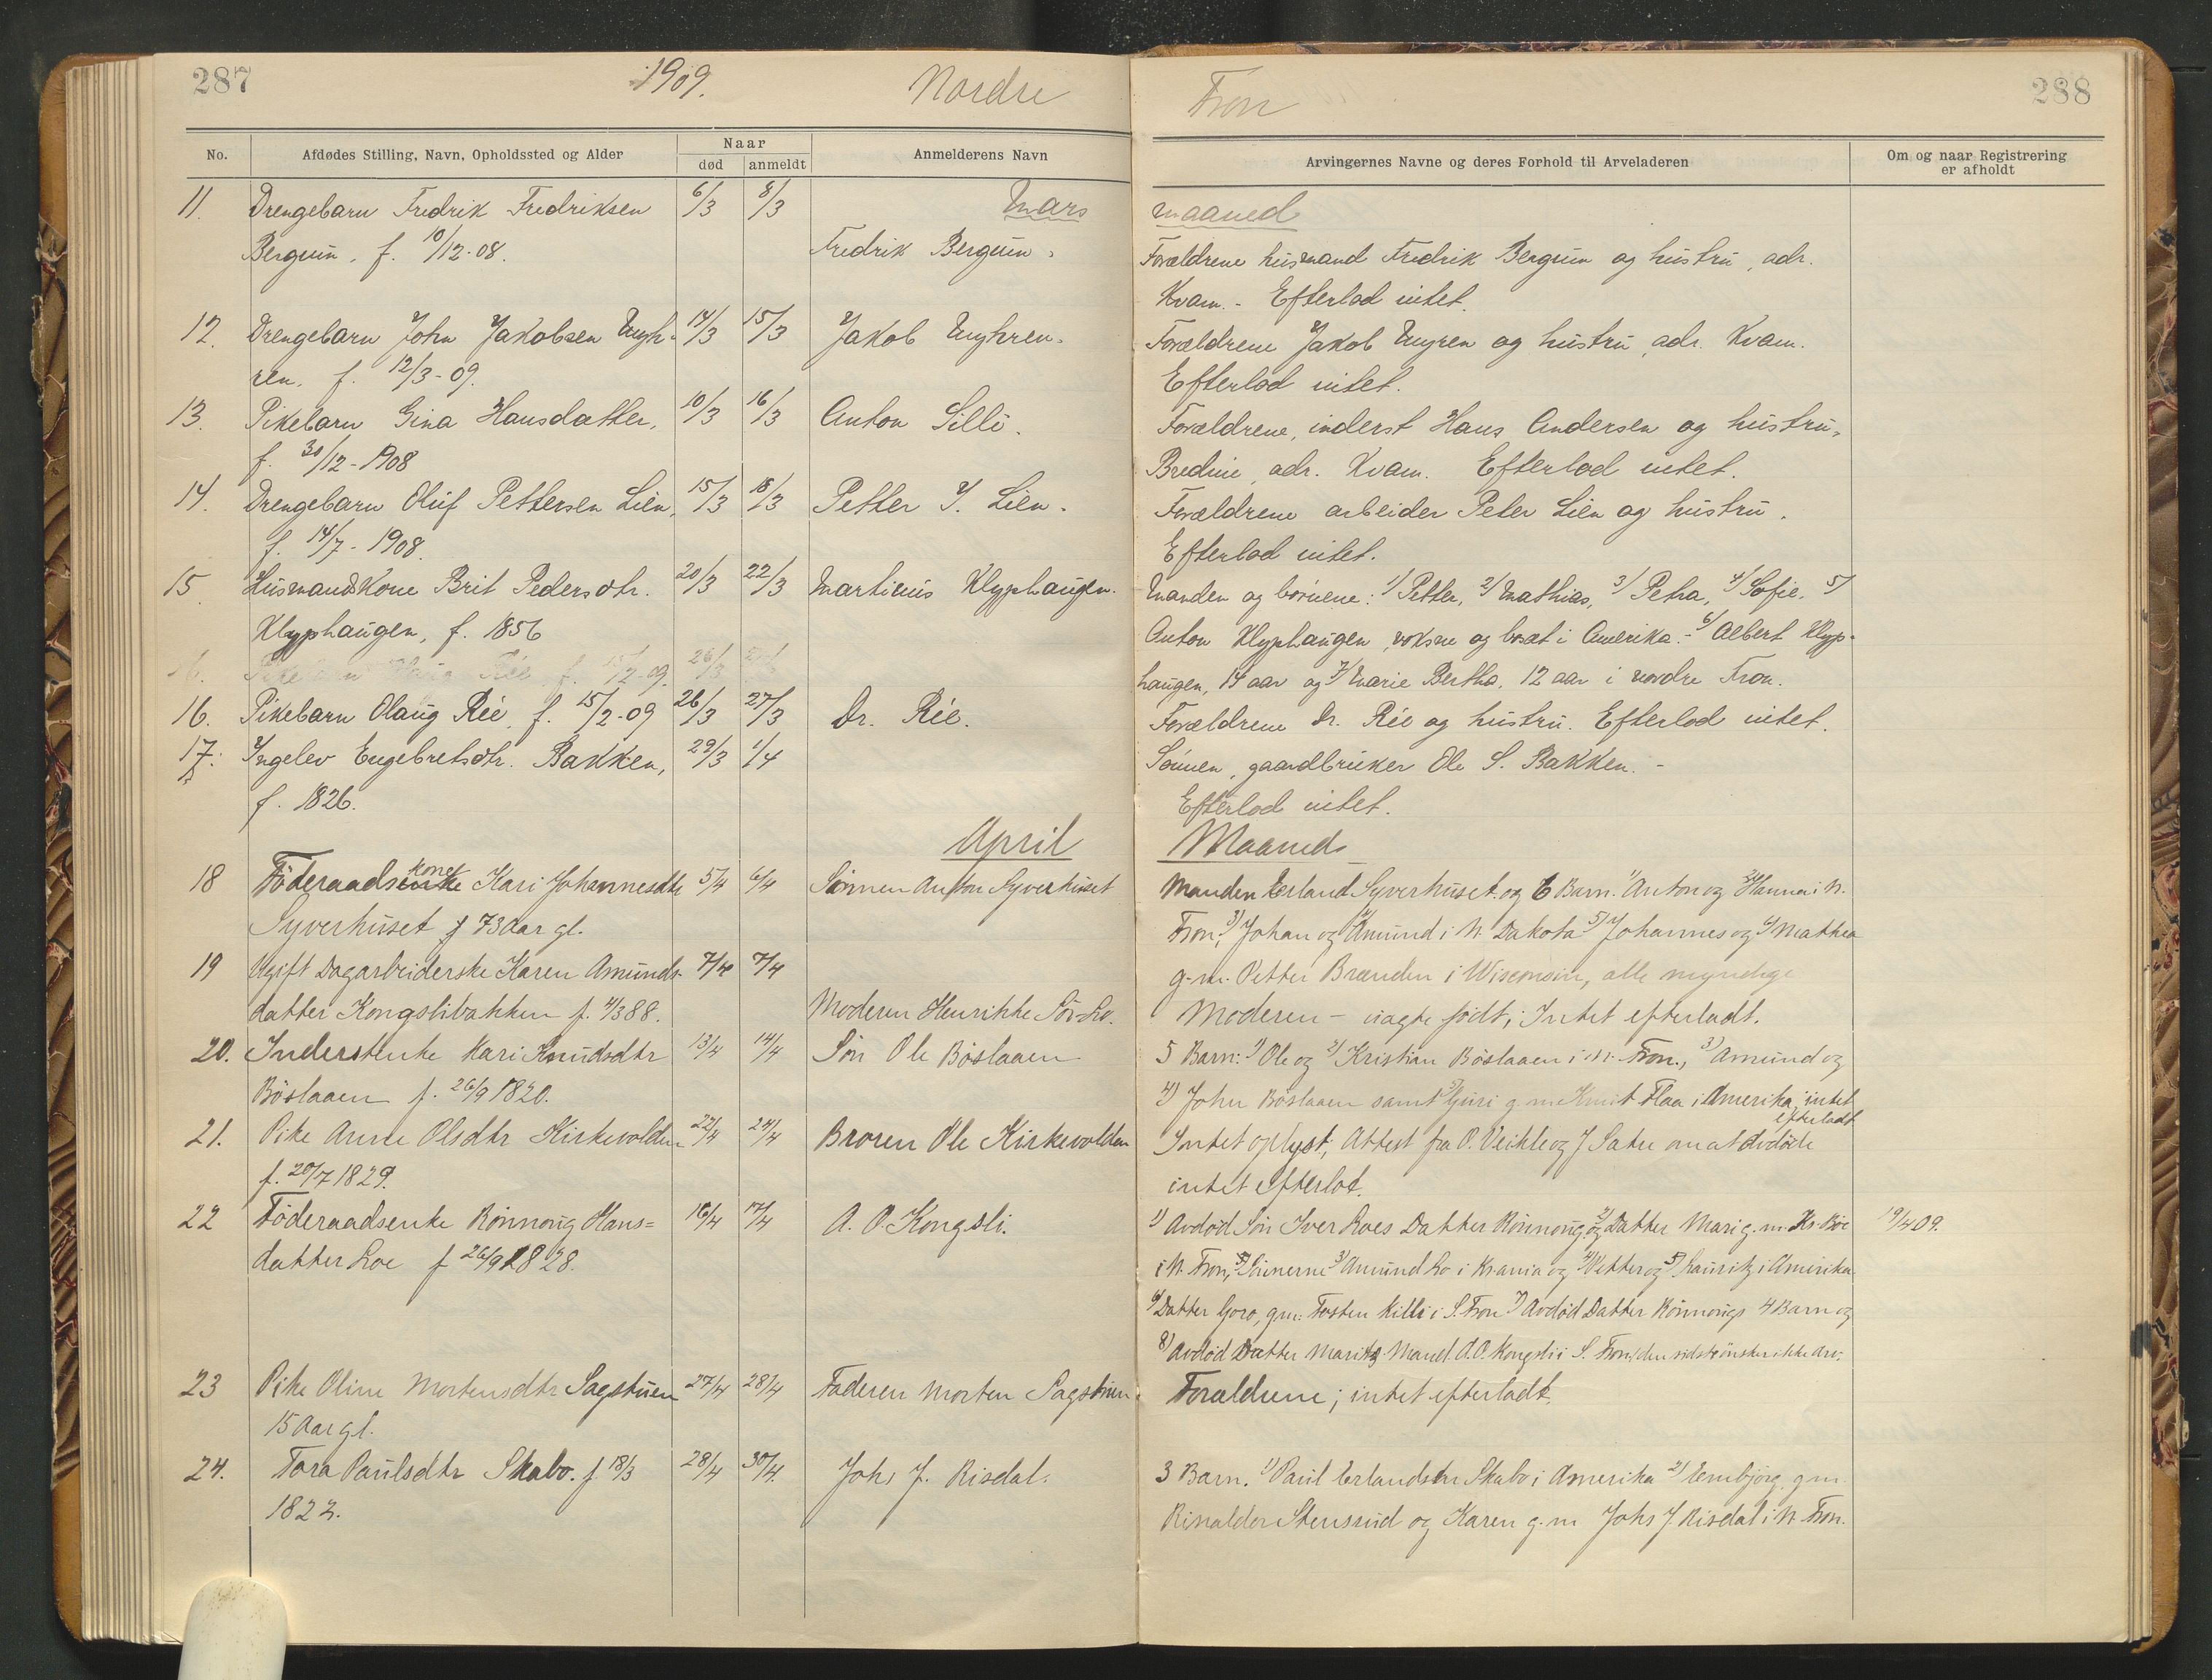 287
1909.
Nordre
Fron
288
No.
Afdødes Stilling, Navn, Opholdssted og Alder
Naar
død
anmeldt
Anmelderens Navn
Arvingernes Navne og deres Forhold til Arveladeren
Om og naar Registrering
er afholdt
Mars
maaned
11. Drengebarn Fredrik Fredriksen 6/3 8/3
Bergum, f. 10/12-08. Fredrik Bergum. Forældrene husmand Fredrik Bergum og hustru, adr.
Kvam. - Efterlod intet.
12. Drengebarn John Jakobsen Mygh- 14/3 15/3 Jakob Myghren. Forældrene Jakob Myren og hustru, adr. Kvam.
ren. f. 12/3-09. Efterlod intet.
13. Pikebarn Gina Hansdatter, 10/3 16/3 Anton Silli. Forældrene, inderst Hans Andersen og hustru,
f. 30/12-1908 Bredine, adr. Kvam. Efterlod intet.
14. Drengebarn Oluf Pettersen Lien, 15/3 18/3 Petter J. Lien. Forældrene arbeider Peter Lien og hustru.
f. 14/7-1908. Efterlod intet.
15. Husmandskone Brit Pedersdtr. 20/3 22/3 Martinus Klyphaugen. Manden og børnene: 1/ Petter, 2/ Mathias, 3/ Petra, 4/ Sofie, 5/
Klyphaugen, f. 1856 Anton Klyphaugen, voksne og bosat i Amerika. - 6/ Albert Klyp-
haugen, 14 aar og 7/ Marie Bertha, 12 aar i nordre Fron.
16. Pikebarn Olaug Rée, f. 15/2-09 26/3 27/3 Dr. Rée. Forældrene Dr. Rée og hustru. Efterlod intet.
17. Ingelev Engebretsdtr. Bakken, 29/3 1/4 Sønnen, gaardbruker Ole S. Bakken. -
f. 1826. Efterlod intet.
April
Maaned
18 Föderaadskone Kari Johannesdtr 5/4 6/4 Sönnen Anton Syverhuset Manden Erland Syverhuset og 6 Barn. 1) Anton og 2) Hanna i N.
Syverhuset f 73 Aar gl. Fron, 3) Johan og 4) Amund i N. Dakota 5) Johannes og 6) Mathea
g.m. Petter Brænden i Wisconsin, alle myndige
19 Ugift Dagarbeiderske Karen Amunds- 7/4 7/4
datter Kongslibakken f. 4/3 88. Moderen Henrikke Sör-Lo. Moderen - uagte födt; Intet efterladt.
20. Inderstenke Mari Knudsdtr 13/4 14/4 Sön Ole Böslaaen 5 Barn: 1) Ole og 2) Kristian Böslaaen i N. Fron., 3) Amund og
Böslaaen f. 26/9 1820. 4) John Böslaaen samt 5) Guri g.m. Knut Flaa i Amerika; intet
efterladt
21. Pike Anne Olsdtr Kirkevolden 22/4 24/4 Broren Ole Kirkevolden Intet oplyst, Attest fra P. Veikle og J Satre om at avdöde
f. 20/7 1829. intet efterlot.
22 Föderaadsenke Rönnoug Hans= 16/4 17/4 A. O. Kongsli. 1) Avdöd Sön Iver Loes Datter Rönnoug og 2) Datter Mari g.m. Kr. Böe 19/4 09.
datter Loe f 26/9 1828. i N. Fron, Sönnerne 3) Amund Lo i Kr.ania og 4) Petter og 5) Lauritz i Amerika
6) Datter Goro, gm. Tosten Killi i S. Fron 7) Avdöd Datter Rönnougs 4 Barn og
8) Avdöd Datter Marits Mand. A.O. Kongsli i S. Fron, den sidste önsker ikke arv.
23 Pike Oline Mortensdtr Sagstuen 27/4 28/4 Faderen Morten Sagstuen Forældrene; intet efterladt.
15 Aar gl.
24. Tora Paulsdtr Skabo. f 18/3 28/4 30/4. Johs J. Risdal. 3 Barn. 1) Paul Erlandsen Skabo i Amerika 2) Embjörg, gm
1822. Stensrud og Karen g.m Johs J. Risdal i N. Fron.